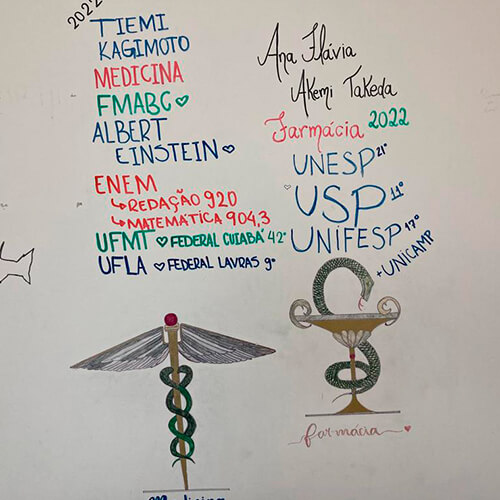 2022
TIEMI
KAGIMOTO
MEDICINA
FMABC
ALBERT
EINSTEIN
ENEM
↳REDAÇÃO 920
↳MATEMÁTICA 904,3
UFMT FEDERAL CUIABÁ 42°
UFLA FEDERAL LAVRAS 9°
Medicina
Ana Flávia
Akemi Takeda
Farmácia 2022
UNESP 21°
USP 11°
UNIFESP 17°
+ UNICAMP
farmácia